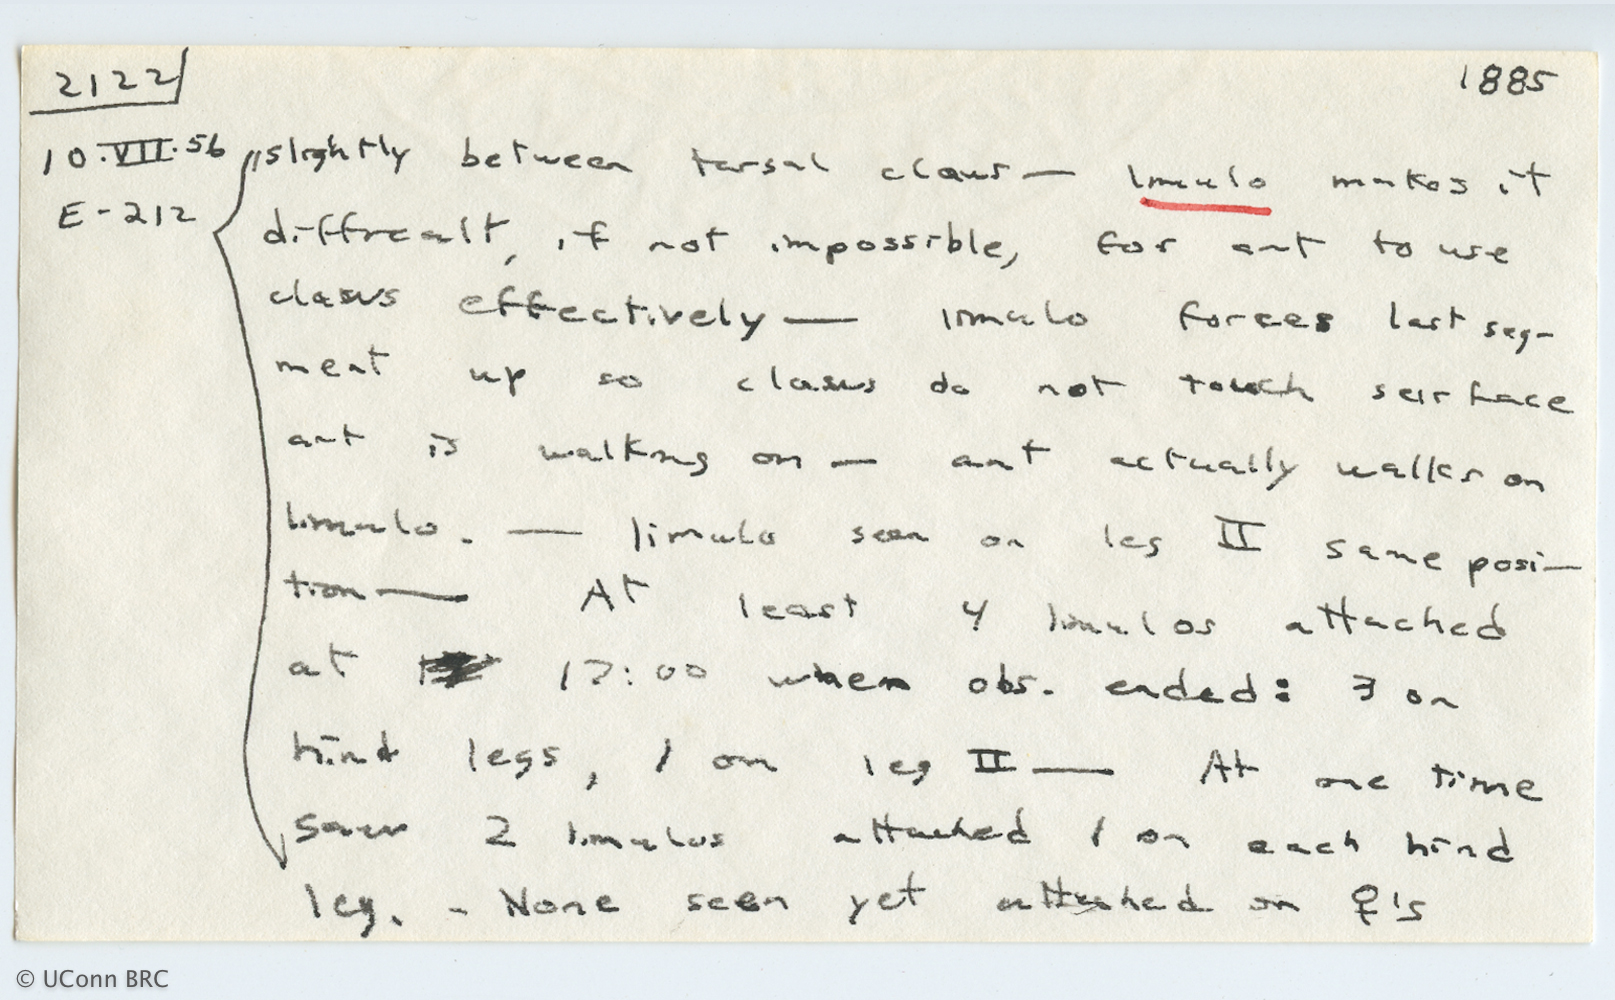 2122 1885
10.VII.56 slightly between tarsal claws — limulo makes it
E-212 difficult, if not impossible, for ant to use
claws effectively — limulo forces last seg-
ment up so claws do not touch surface
ant is walking on — ant actually walks on
limulo. — limulo seen on leg II same posi-
tion — At least 4 limulos attached
at 17:00 when obs. ended: 3 on
hind legs, 1 on leg II — At one time
saw 2 limulus attached 1 on each hind
leg. - None seen yet attached on ♀'s
© UConn BRC